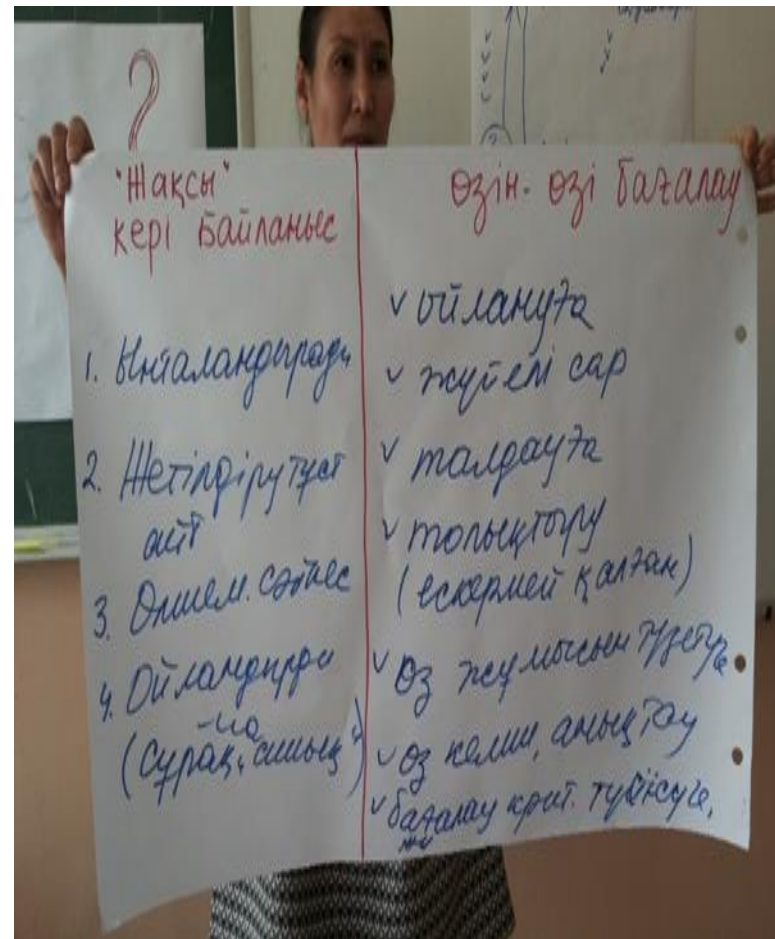 ?
"Жақсы"
кері байланыс
1. Ынталандырады
2. Жетілдіру түст
айт
3. Өлшем. сәйкес
4. Ойландырды
(сұрақ, "ашық")
өзін-өзі бағалау
✓ ойлануға
✓ жүйелі сар
✓ талдауға
✓ толықтыру
(ескермей қалған)
✓ өз жұмысын түзетуге
✓ өз келш, анықтау
✓ бағалау крит. түсінуге,